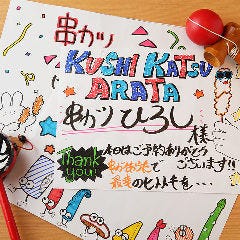 串カツ
KUSHI KATSU
ARATA
串カツ ひろし 様
Thank you!
本日はご予約ありがとう
ございます!!
串カツあらたで
最高のヒトトキを・・・